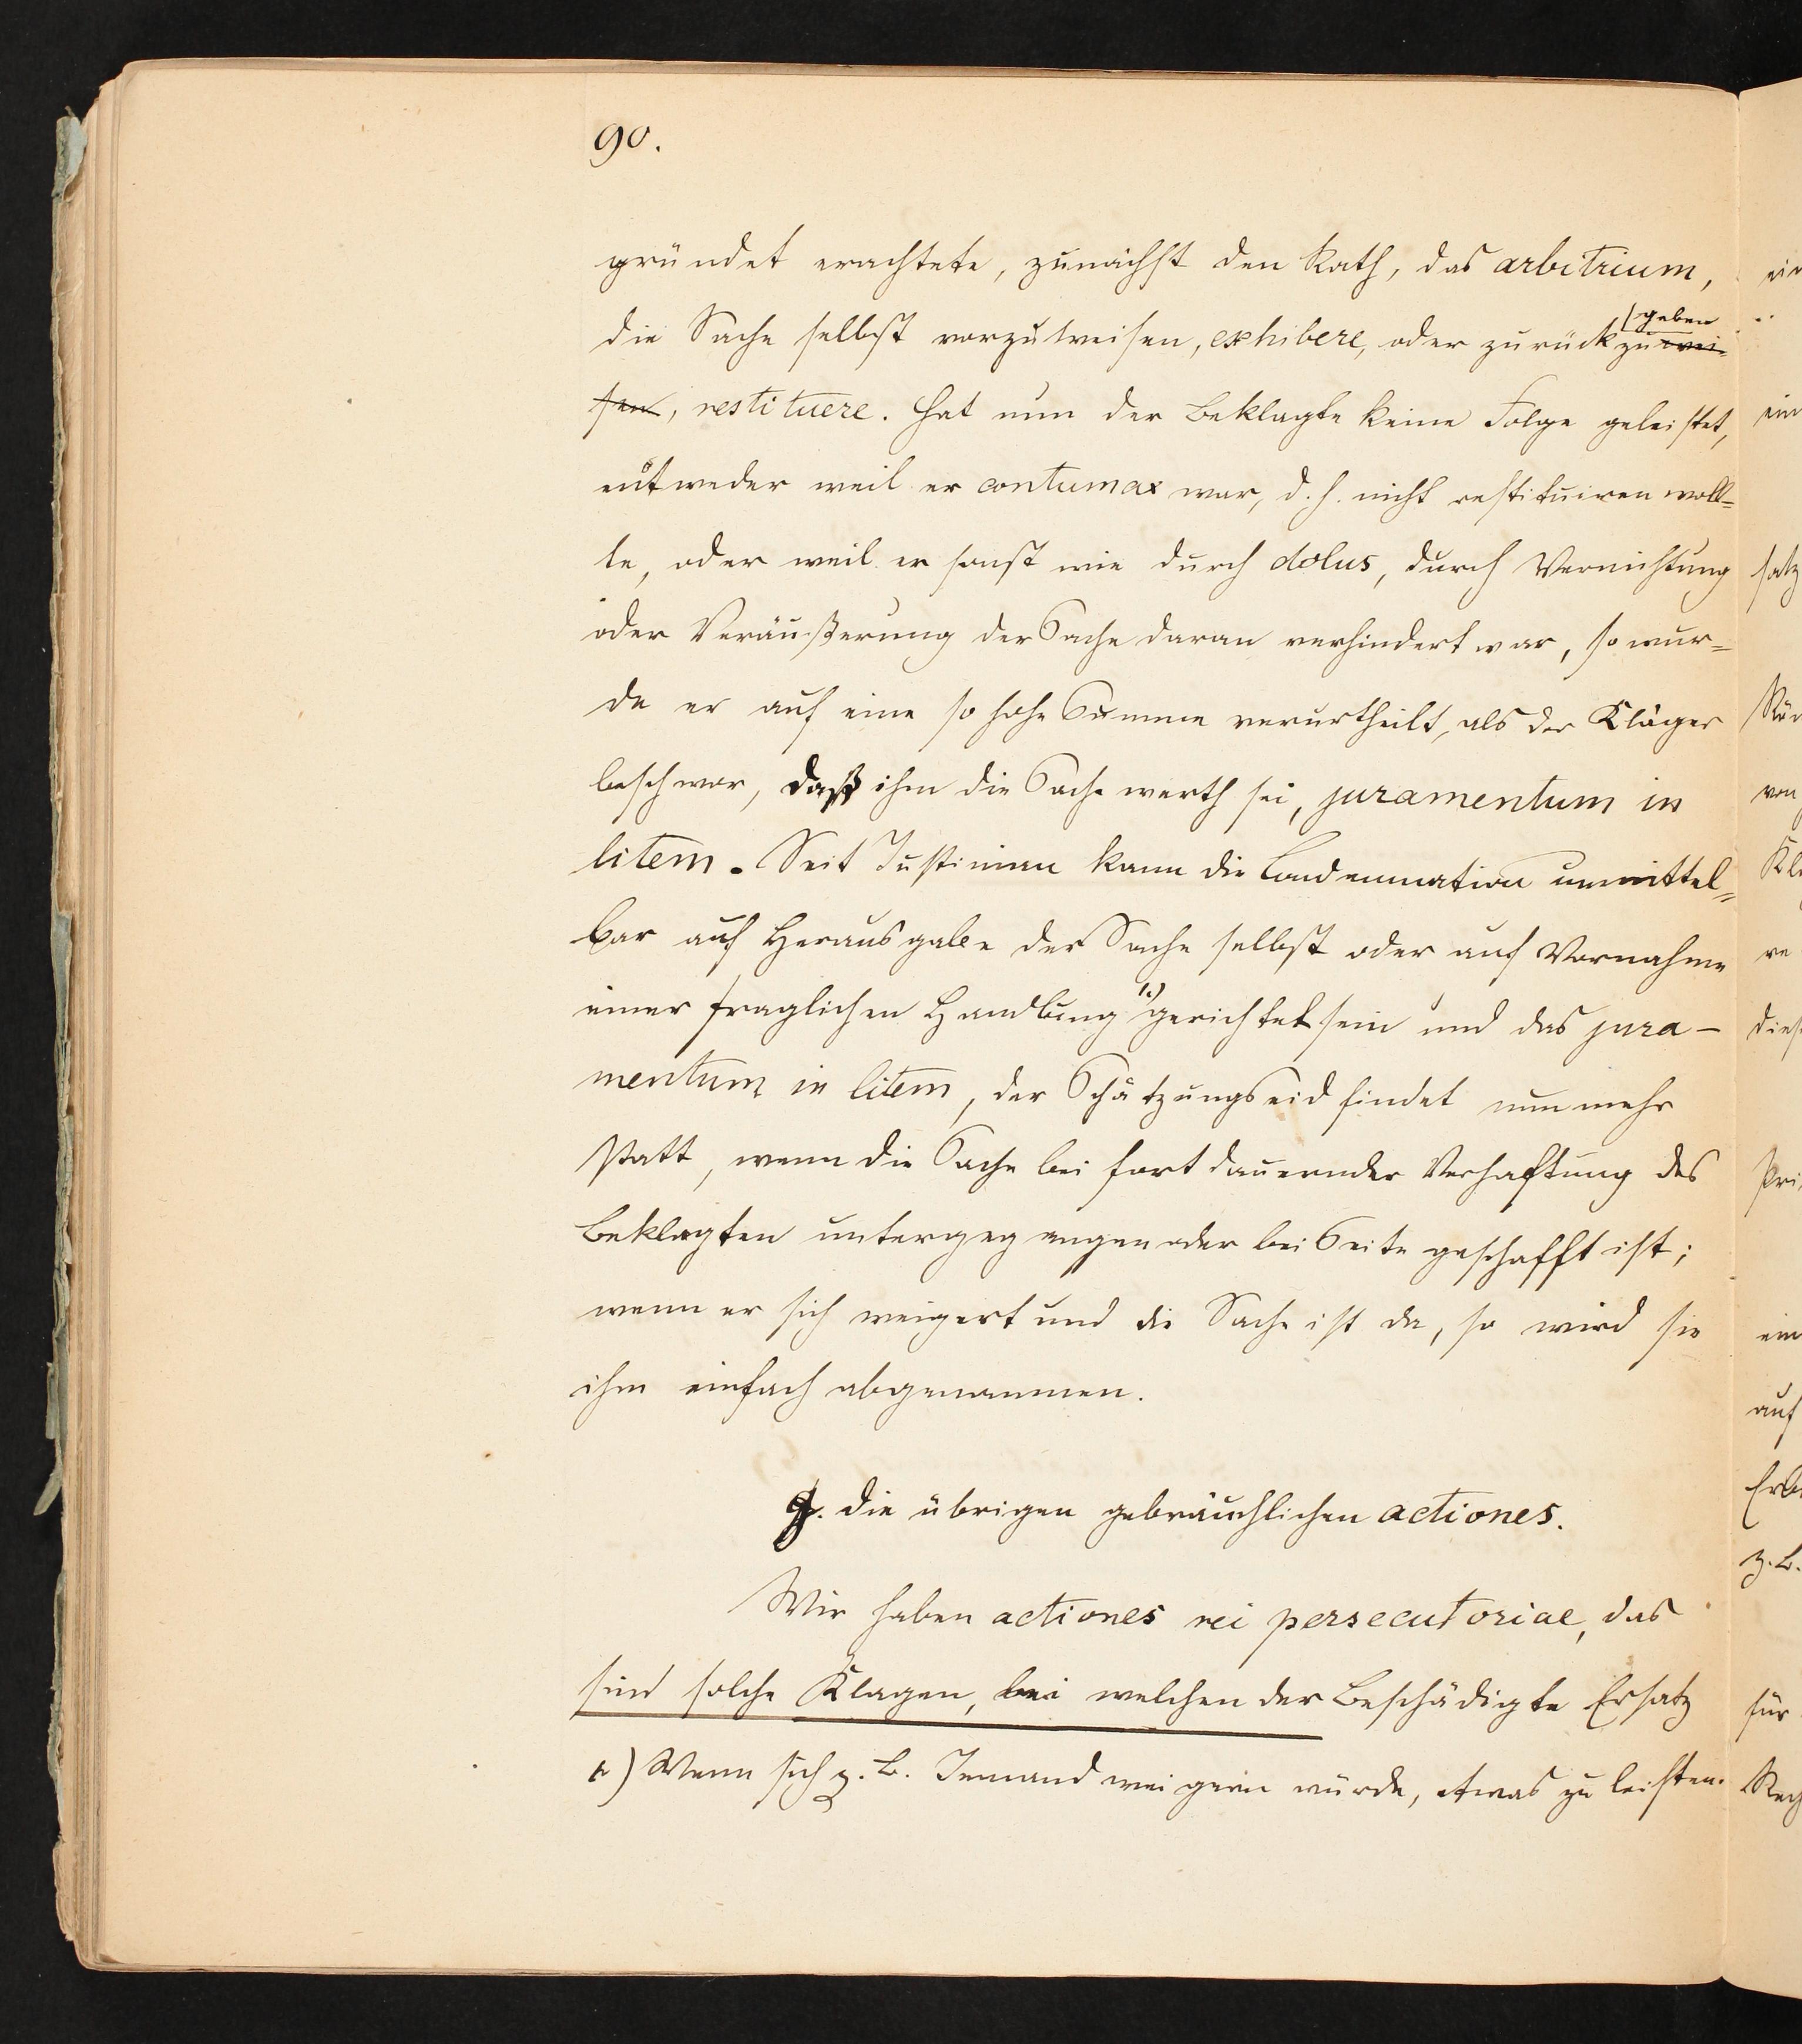 90.
gründet erachtete, zunächst den Rath, das arbitrium,
die Sache selbst vorzuweisen, exhibere, oder zurückzu geben wei-
sen, restituere. Hat nun der Beklagte keine Folge geleistet,
entweder weil er contumax war, d. h. nicht restituiren woll-
te, oder weil er sonst wie durch dolus, durch Vernichtung
oder Veräußerung der Sache daran verhindert war, so wur-
de er auf eine so hohe Summe verurtheilt, als der Kläger
beschwor, daß ihm die Sache werth sei, juramentum in
litem. Seit Justinian kann die Condemnation unmittel-
bar auf Herausgabe der Sache selbst oder auf Vornahme
einer fraglichen Handlung 1.) gerichtet sein und das jura-
mentum in litem, der Schätzungseid findet nunmehr
statt, wenn die Sache bei fortdauernder Verhaftung des
Beklagten untergegangen oder bei Seite geschafft ist;
wenn er sich weigert und die Sache ist da, so wird sie
ihm einfach abgenommen.
die übrigen gebräuchlichen actiones.
Wir haben actiones rei persecutoriae, das
sind solche Klagen, bei welchen der Beschädigte Ersatz
1.) Wenn sich z. B. Jemand weigern würde, etwas zu leisten.